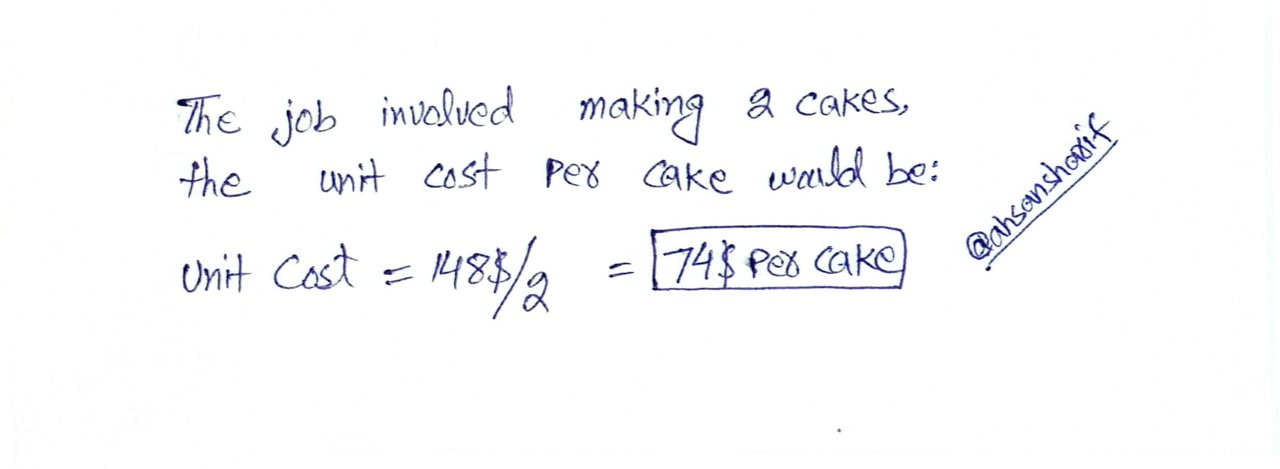 The job involved making 2 cakes,
the unit cost per cake would be:
Unit Cost = 148$/2 = 74$ per cake
@ahsansharif